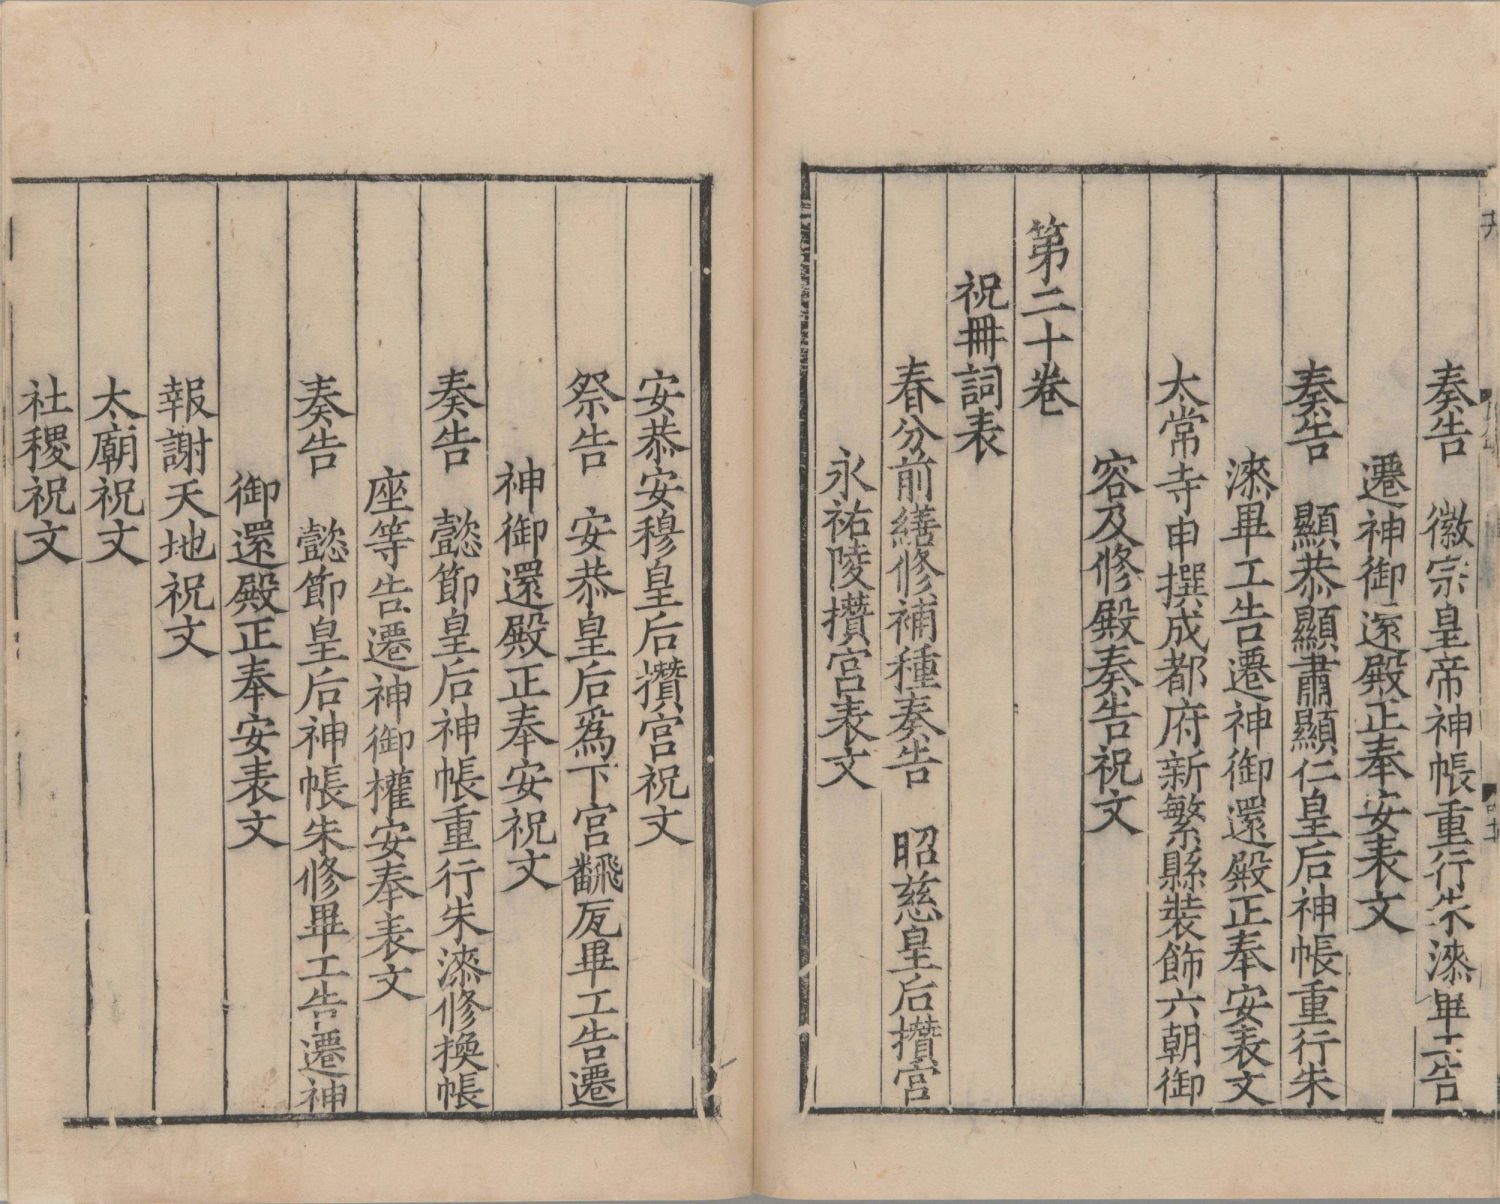 奏告　徽宗皇帝神帳重行朱漆畢工告
遷神御還殿正奉安表文
奏告　顯恭顯肅顯仁皇后神帳重行朱
漆畢工告遷神御還殿正奉安表文
太常寺申撰成都府新繁縣裝飾六朝御
容及修殿奏告祝文
第二十卷
祝冊詞表
春分前繕修補種奏告　昭慈皇后攢宮
永祐陵攢宮表文
安恭安穆皇后攢宮祝文
祭告　安恭皇后爲下宮飜瓦畢工告遷
神御還殿正奉安祝文
奏告　懿節皇后神帳重行朱漆修換帳
座等告遷神御權安奉表文
奏告　懿節皇后神帳朱修畢工告遷神
御還殿正奉安表文
報謝天地祝文
太廟祝文
社稷祝文